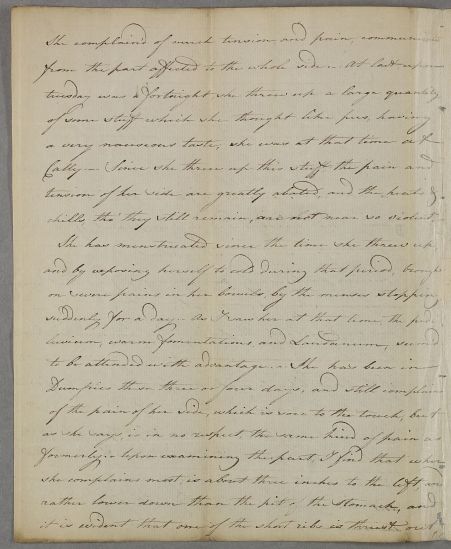 She complaind of much tension and pain, communicated
from the part affected to the whole side. At last upon
tuesday was a fortnight she threw up a large quantity
of some stuff which she thought like pus, having
a very nauseous taste, she was at that time at
Cally – Since she threw up this stuff the pain and
tension of her side are greatly abated, and the heats &
chills, tho' they still remain, are not near so violent
She has menstruated since the time she threw up
and by exposing herself to cold during that period, brought
on severe pains in her bowels, by the menses stopping
suddenly for a day – As I saw her at that time, the pedi
luvium, warm fomentations, and Laudanum, seemed
to be attended with advantage. – She has been in
Dumfries these three or four days, and still complains
of the pain of her side, which is sore to the touch, but
as she says, is in no respect the same kind of pain as
formerly – Upon examining the part, I find that where
she complains most is about three inches to the left, and
rather lower down than the pit of the Stomach, and
it is evident that one of the short ribs is thrust out